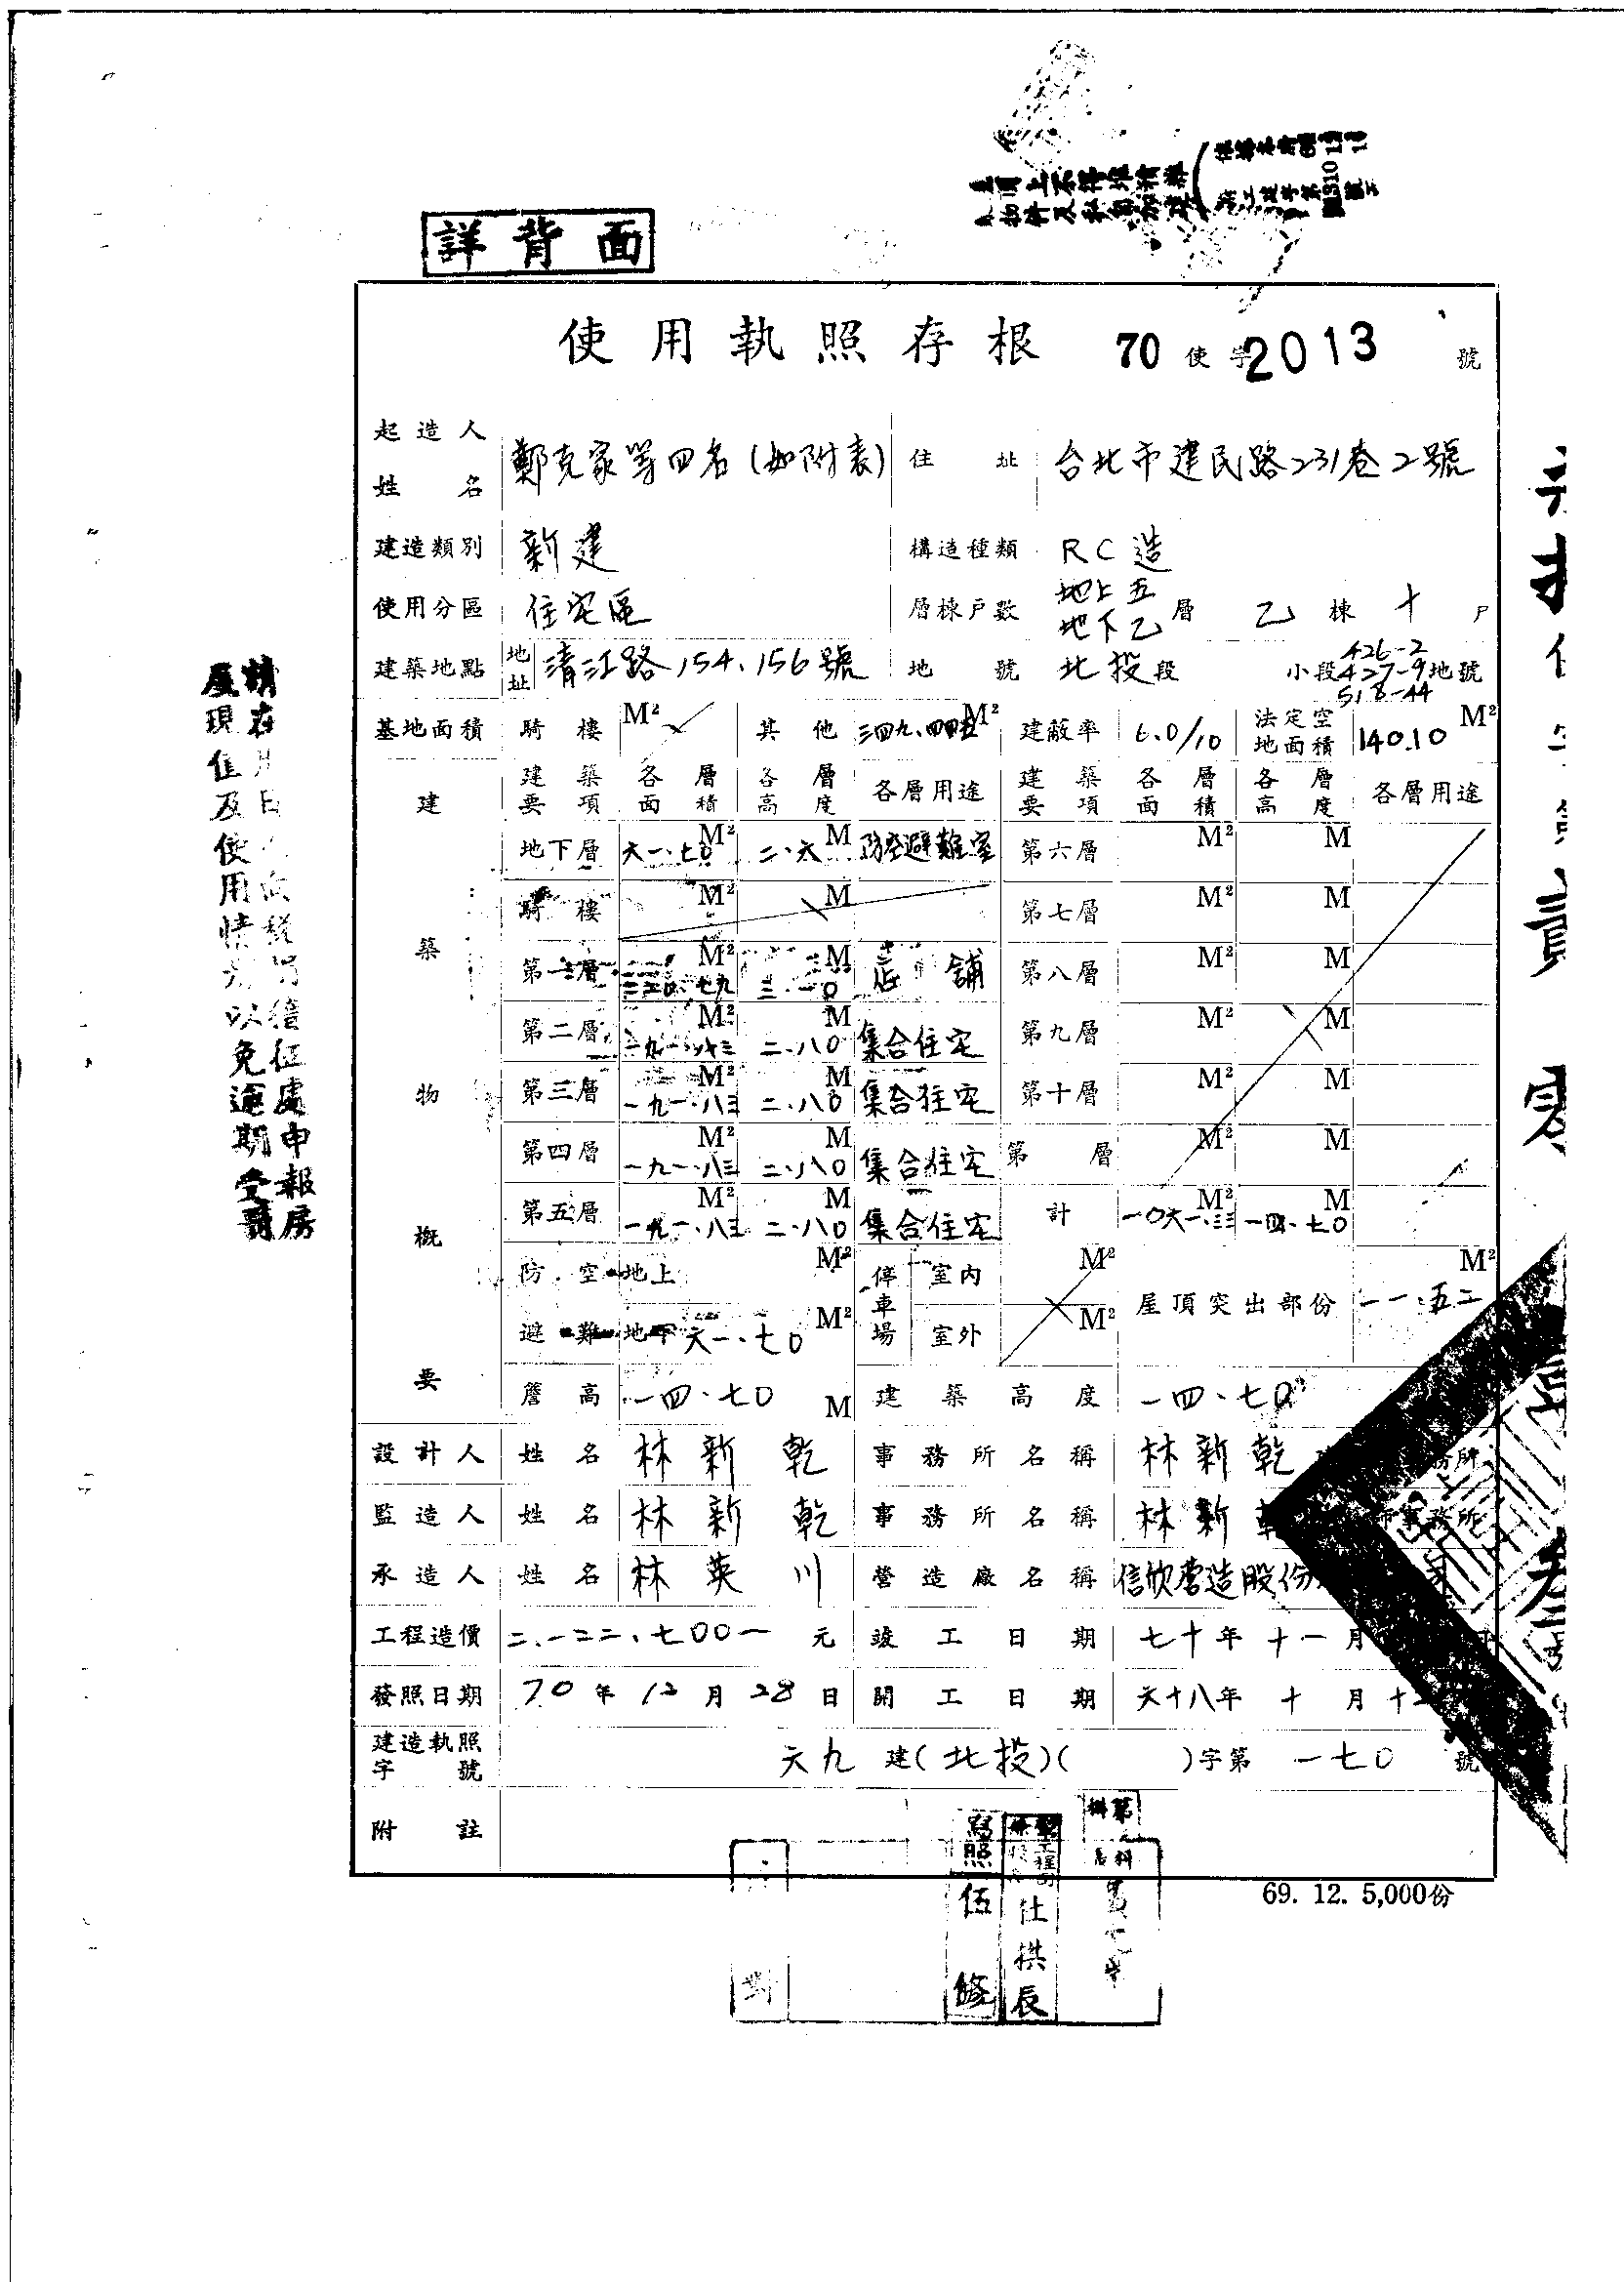 詳背面
使用執照存根 70 使字 2013 號
起造人姓名 鄭克家等四名(如附表) 住址 台北市建民路231巷2號
建造類別 新建 構造種類 RC造
使用分區 住宅區 層棟戶數 地上五 地下乙 層 乙 棟 十 戶
建築地點 地址 清江路154、156號 地號 北投 段 小段 426-2 427-9 518-44 地號
基地面積 騎樓 M² 其他 三四九.四四五 M² 建蔽率 6.0/10 法定空地面積 140.10 M²
建築物概要
建築要項 各層面積 各層高度 各層用途 建築要項 各層面積 各層高度 各層用途
地下層 六一.七0 M² 二.六 M 防空避難室 第六層 M² M
騎樓 M² M 第七層 M² M
第一層 M² 三.一0 M 店舖 第八層 M² M
第二層 一九一.八三 M² 二.八0 M 集合住宅 第九層 M² M
第三層 一九一.八三 M² 二.八0 M 集合住宅 第十層 M² M
第四層 一九一.八三 M² 二.八0 M 集合住宅 第 層 M² M
第五層 一九一.八三 M² 二.八0 M 集合住宅 計 一0六一.三三 M² 一四.七0 M
防空避難 地上 M² 停車場 室內 M² 屋頂突出部份 一一.五二 M²
地下 六一.七0 M² 室外 M²
簷高 一四.七0 M 建築高度 一四.七0
設計人 姓名 林新乾 事務所名稱 林新乾 務所
監造人 姓名 林新乾 事務所名稱 林新乾 事務所
承造人 姓名 林英川 營造廠名稱 信欣營造股份
工程造價 二.一二二.七00一 元 竣工日期 七十年十一月
發照日期 70年12月28日 開工日期 六十八年十月十
建造執照字號 六九 建(北投)( )字第 一七0 號
附註
69. 12. 5,000份
寫照 伍
請在 月 日 向 申報房
屋現 及使用情 以免逾期受罰